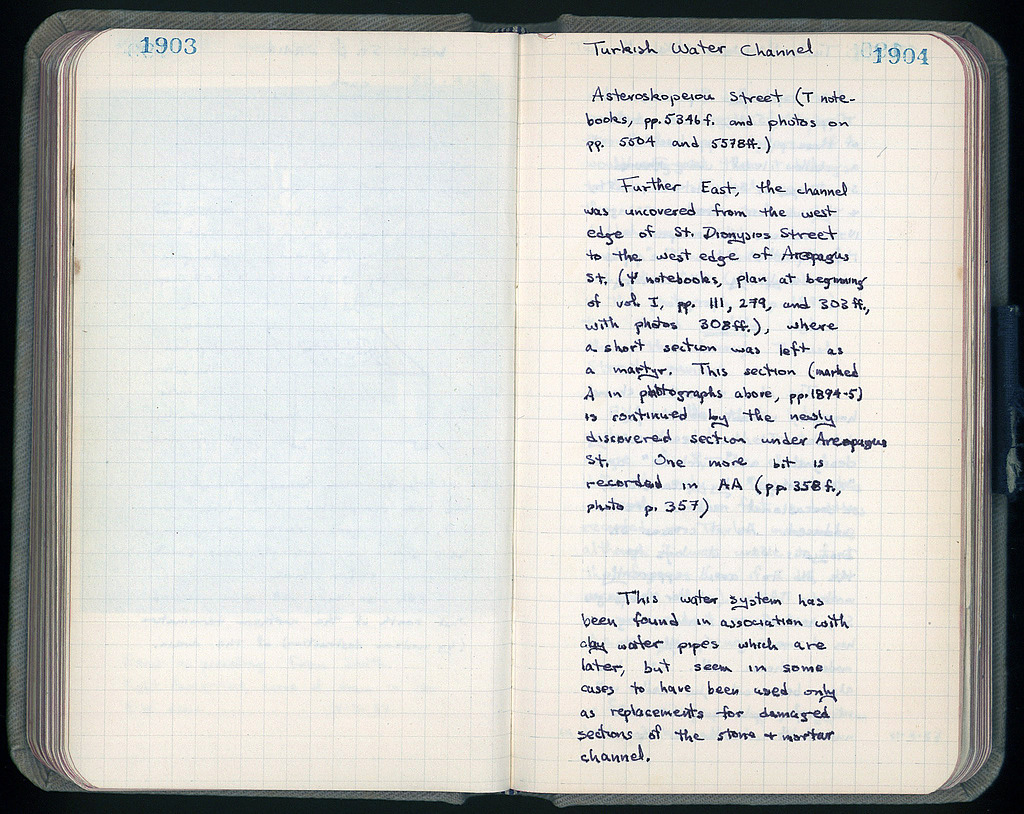 1903
1904
Turkish Water Channel
Asteroskopeiou Street (T note-
books, pp. 5346f. and photos on
pp. 5504 and 5578ff.)
Further East, the channel
was uncovered from the west
edge of St. Dionysios Street
to the west edge of Areopagus
St. (Ψ notebooks, plan at beginning
of vol. I, pp. 111, 279, and 303ff.,
with photos 308ff.), where
a short section was left as
a martyr. This section (marked
A in photographs above, pp. 1894-5)
is continued by the newly
discovered section under Areopagus
St. One more bit is
recorded in AA (pp. 358f.,
photo p. 357)
This water system has
been found in association with
clay water pipes which are
later, but seem in some
cases to have been used only
as replacements for damaged
sections of the stone + mortar
channel.